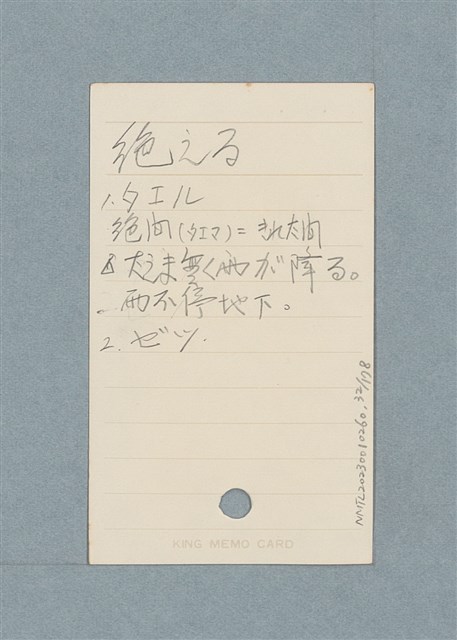 絶える
1. タエル
絶间(タエマ)=きれた间
たえま無く雨が降る。
雨不停地下。
2. ゼツ.
KING MEMO CARD
NMTL20230010260, 32/178